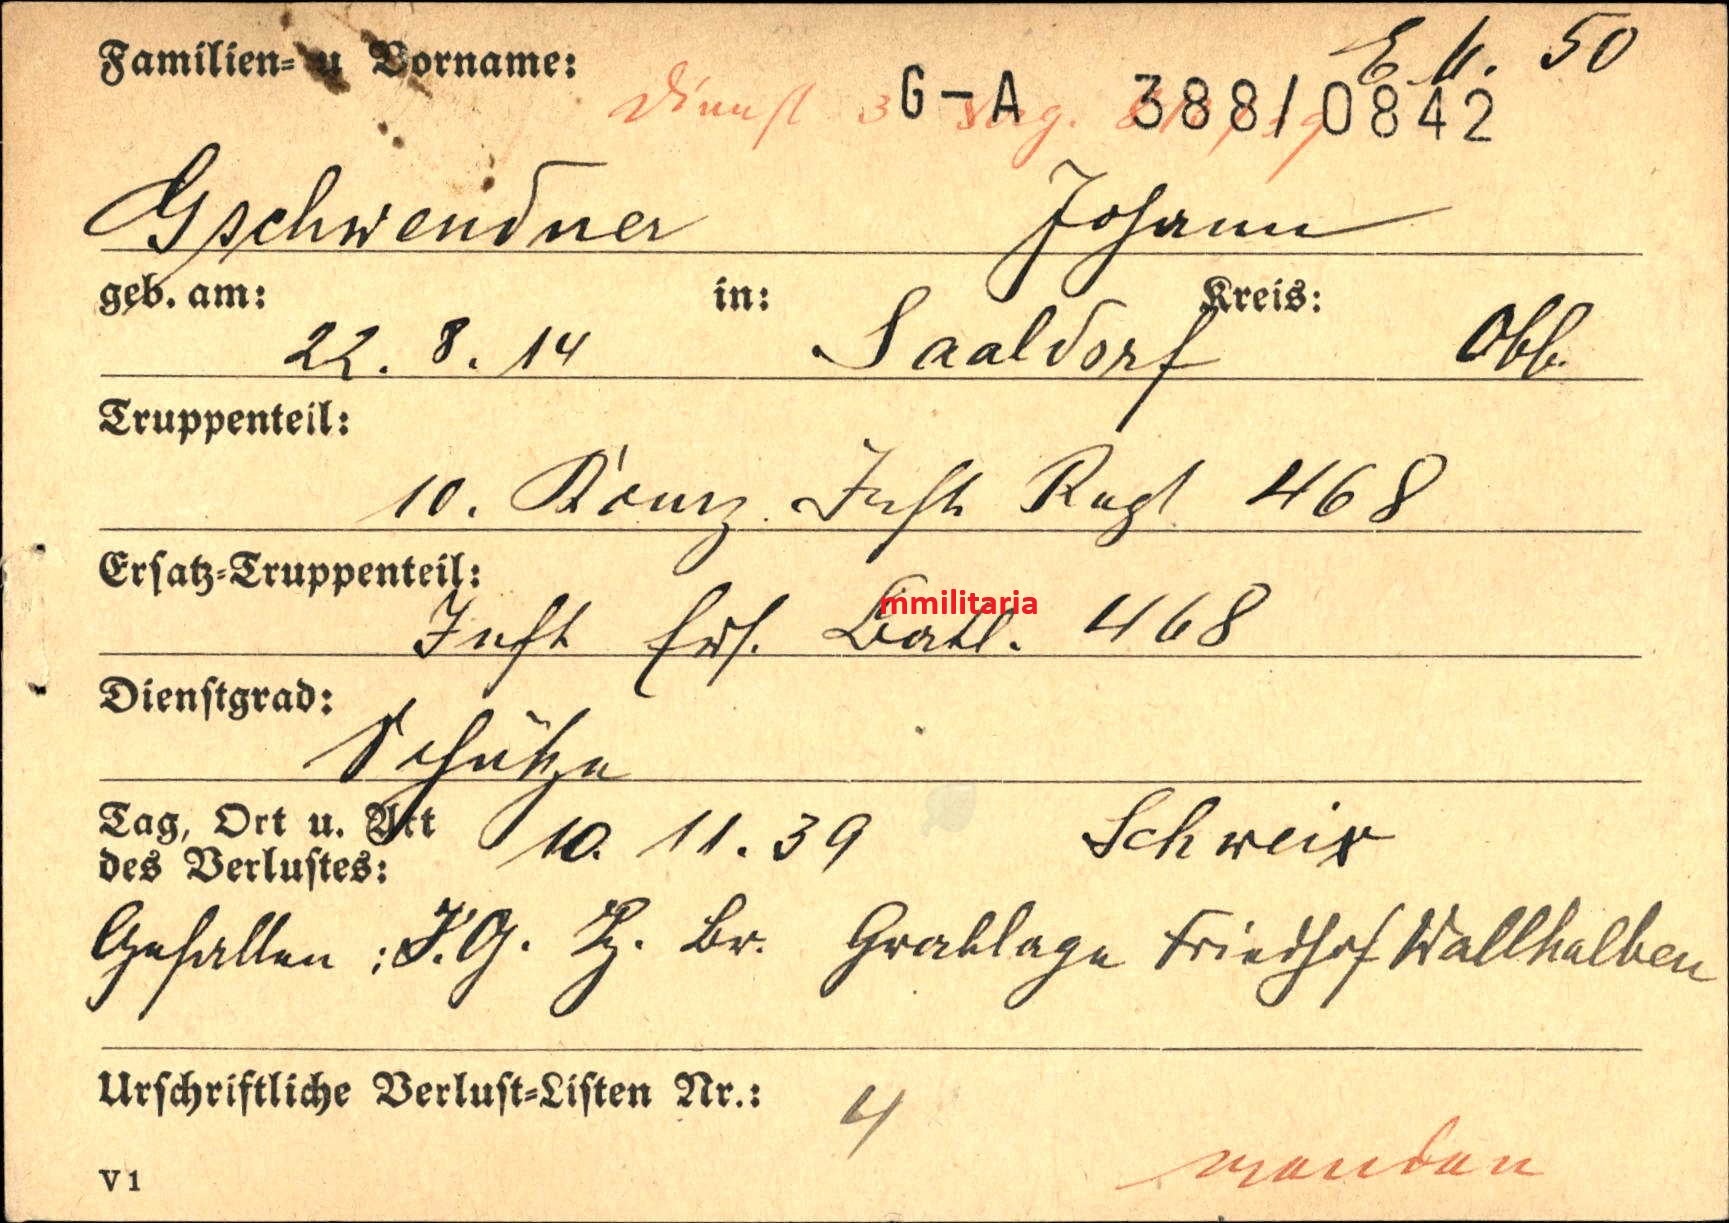 Familien- u Vorname:
E. M. 50
G-A 388/0842
Gschwendner Johann
geb. am: in: Kreis:
22. 8. 14 Saaldorf Obb.
Truppenteil:
10. Komp. Inft. Regt 468
Ersatz-Truppenteil:
Inft Ers. Batl. 468
mmilitaria
Dienstgrad:
Schütze
Tag, Ort u. Art
des Verlustes:
10. 11. 39 Schweix
Gefallen; I. G. Br. Grablage Friedhof Wallhalben
Urschriftliche Verlust-Listen Nr.: 4
V 1